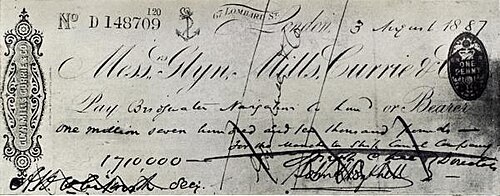 120
No D 148709
67 LOMBARD ST.
London, 3 August 1887
Messrs Glyn, Mills, Currie & Co
ONE PENNY
GLYN, MILLS, CURRIE & CO
Pay Bridgwater Navigation Co Limd or Bearer
one million seven hundred and ten thousand pounds
for the Manchester Ship Canal Company
1710000 —
Director
Secy.